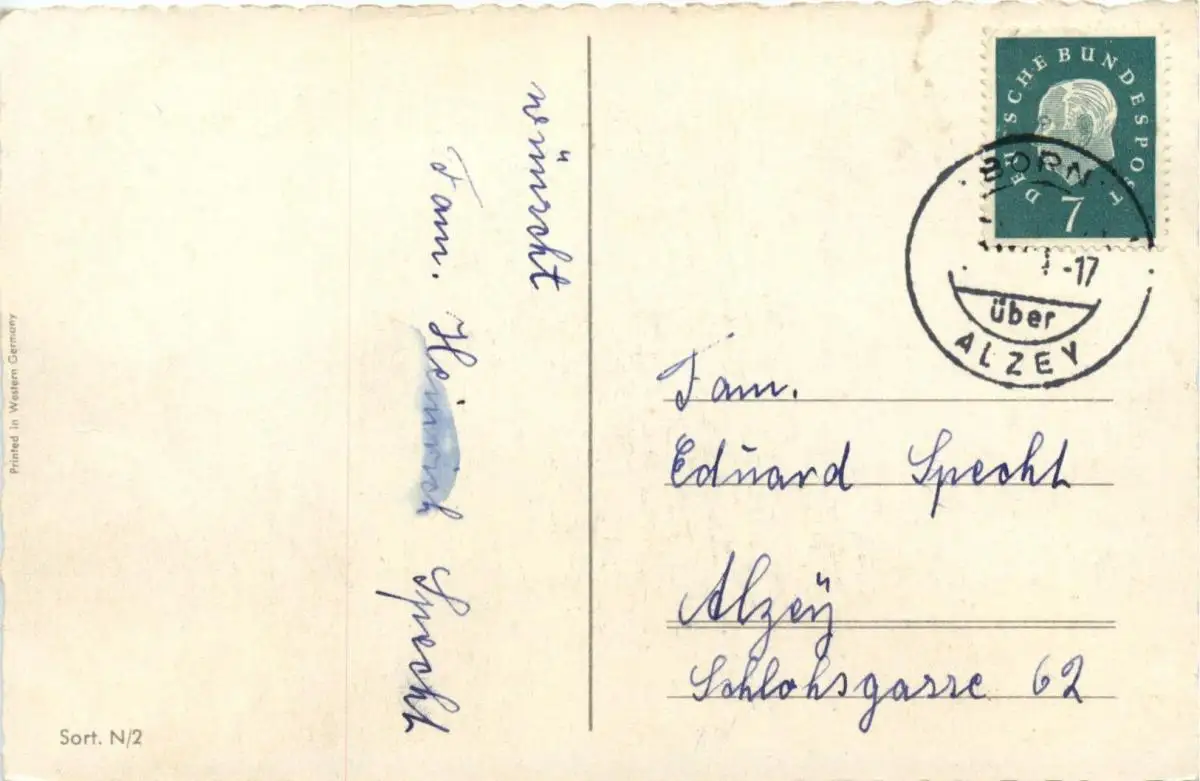 wünscht
Fam. Heinrich Specht
Printed in Western Germany
Sort. N/2
DEUTSCHE BUNDESPOST
7
BORN
-17
über
ALZEY
Fam.
Eduard Specht
Alzeÿ
Schloßgasse 62